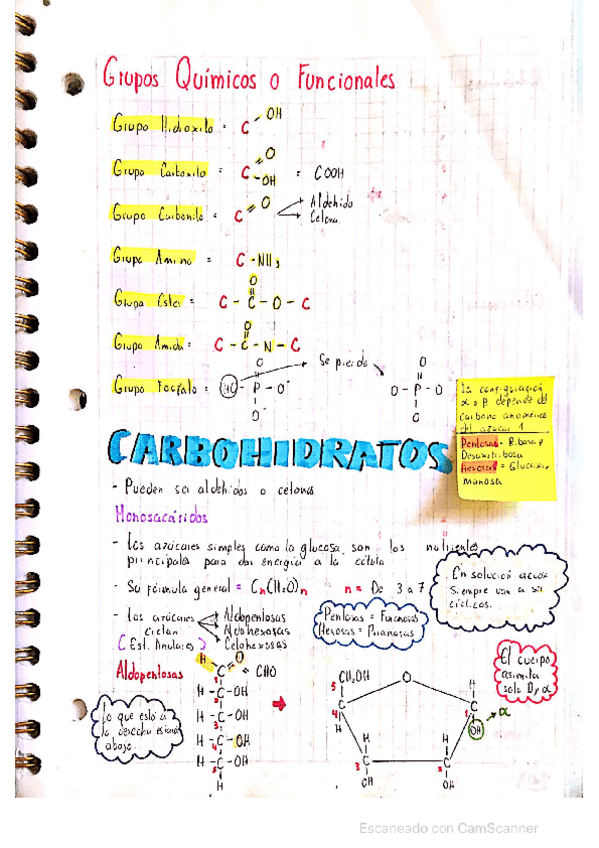 Grupos Químicos o Funcionales
Grupo Hidroxilo = C OH
Grupo Carboxilo = C O OH = COOH
Grupo Carbonilo = C O Aldehido Cetona
Grupo Amino = C - NH
Grupo Ester = C - C - O - C
O
Grupo Amida = C - C - N - C
O
Grupo Fosfato = HO - P - O⁻
O
O⁻
Se pierde
O - P - O
O
O
La configuración
α o β depende del
carbono anomérico
del azúcar 1
Pentosas = Ribosa y
Desoxirribosa
Hexosas = Glucosa,
manosa
CARBOHIDRATOS
- Pueden ser aldehidos o cetonas
Monosacáridos
- Los azúcares simples como la glucosa, son los nutrientes
principales para dar energía a la célula
- Su fórmula general = Cn(H2O)n n = De 3 a 7
En solución acuosa
siempre van a ser
cíclicos.
- Los azúcares
ciclan
(Est. Anulares)
Aldopentosas
Aldohexosas
Cetohexosas
Pentosas = Furanosas
Hexosas = Piranosas
El cuerpo
asimila
solo D, α
Aldopentosas
Lo que está a
la derecha estará
abajo.
H O
C CHO
1
H - C - OH
2
H - C - OH
3
H - C - OH
4
H - C - OH
5
H
CH2OH
5
O
H
C
4
H
C
1
OH
α
H
C
3
OH
H
C
2
OH
Escaneado con CamScanner